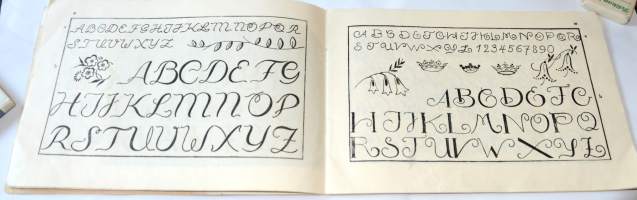 ABCDEFGHIJKLMNOPQR
STUVWXYZ
ABCDEFG
HIJKLMNOP
RSTUVWXYZ
ABCDEFGHIJKLMNOPQR
STUVWXYZ 1234567890
ABCDEFG
HIJKLMNOPQ
RSTUVWXYZ